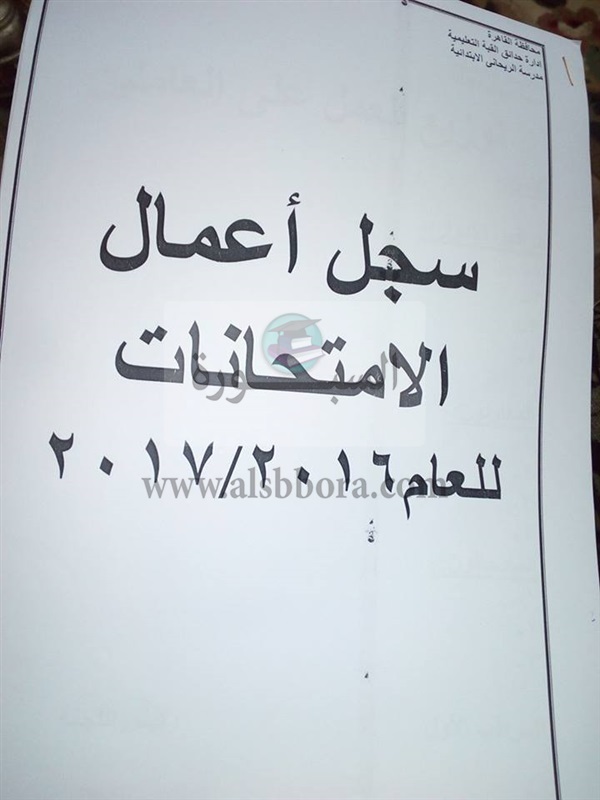 محافظة القاهرة
ادارة حدائق القبة التعليمية
مدرسة الريحانى الابتدائية
سجل أعمال
الامتحانات
السبورة
للعام ٢٠١٦/٢٠١٧
www.alsbbora.com